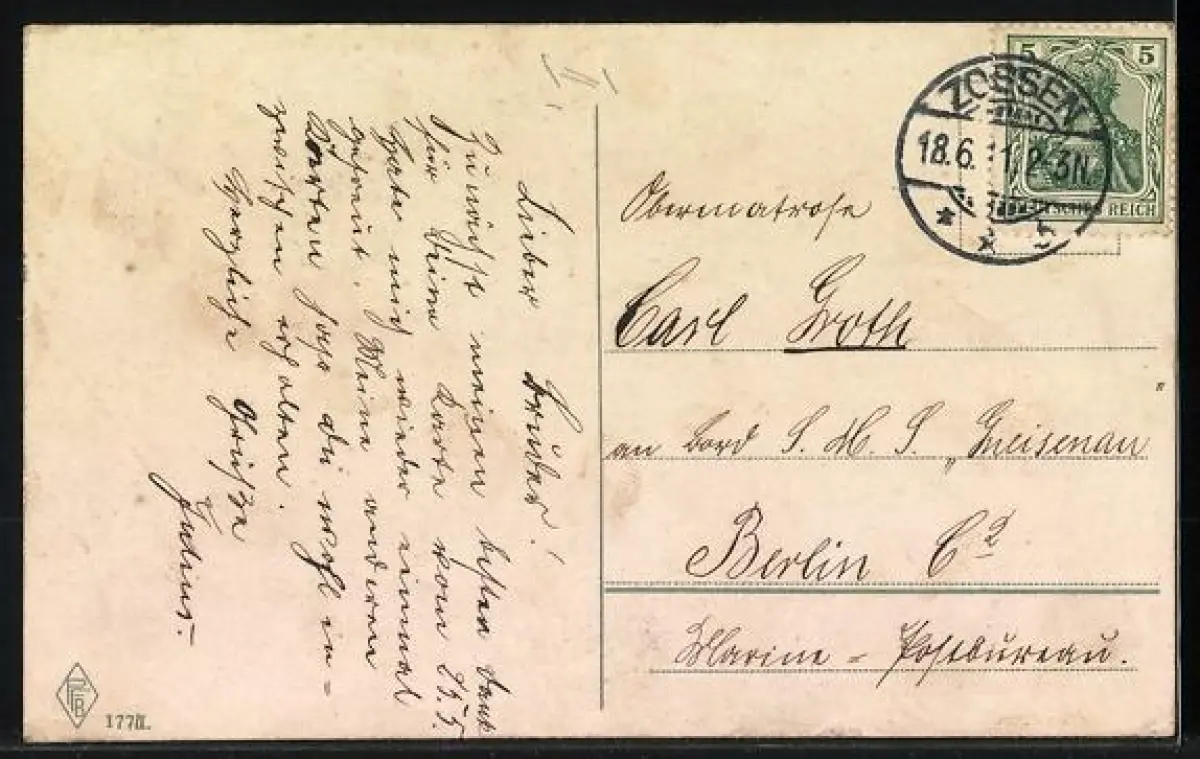 II.
Lieber Bruder!
Zunächst meinen besten Dank
für Deine Karte vom 25.5.
Hate mich wieder einmal
gefreut. Meine anderen
Karten hast du wohl in-
zwischen erhalten.
Herzliche Grüsze
Julius.
PFB
ZOSSEN
18.6.11.2-3N.
5 5
DEUTSCHES REICH
Obermatrose
Carl Groth
an Bord S. M. S. „Gneisenau"
Berlin C2
Marine-Postbureau.